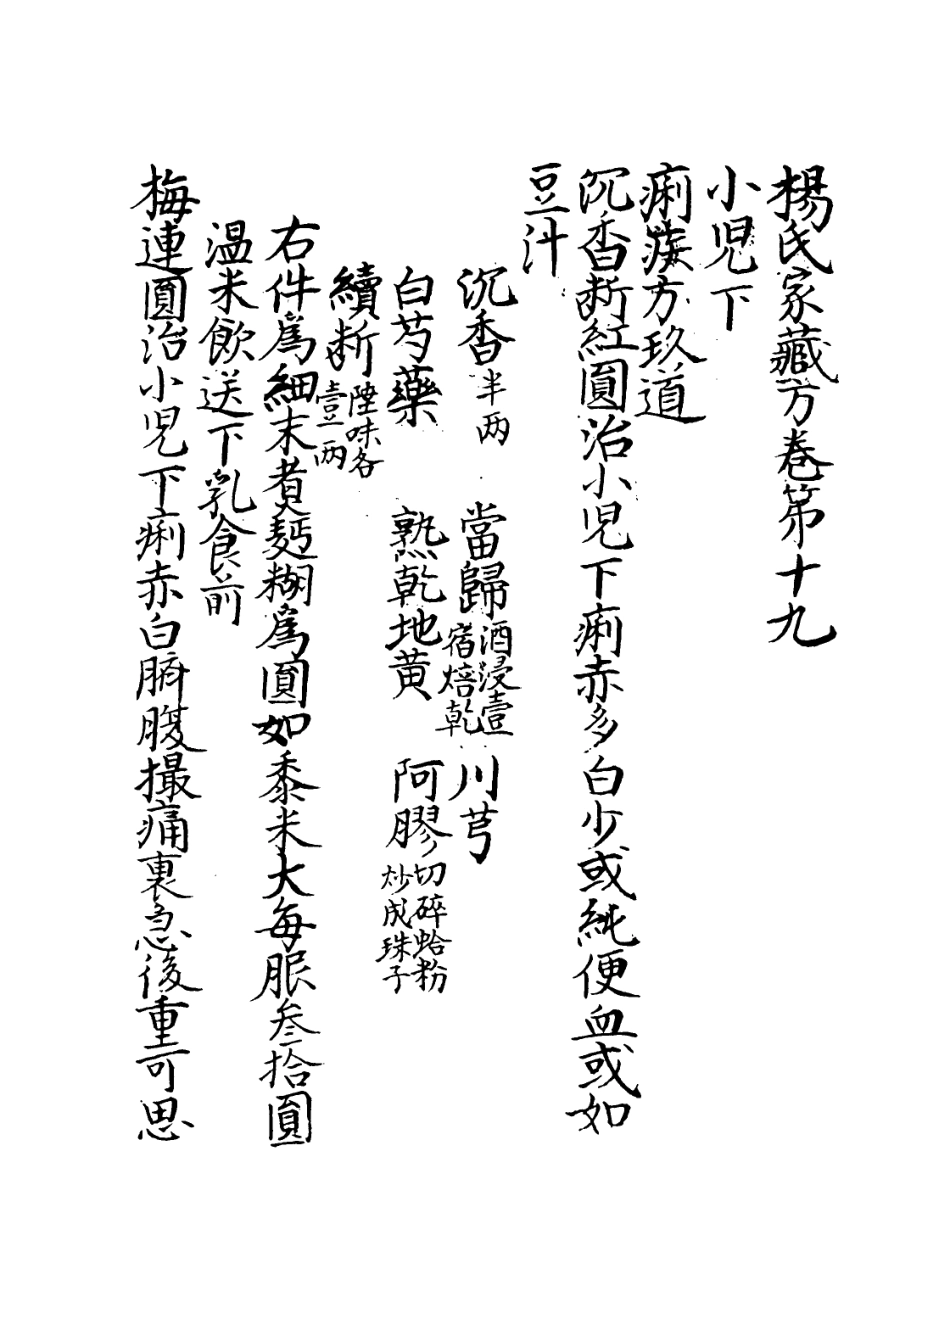 楊氏家藏方卷第十九
小児下
痢疾方玖道
沉香斷紅圓治小児下痢赤多白少或純便血或如
豆汁
沉香半两 當歸酒浸壹宿焙乾 川芎
白芍藥 熟乾地黄 阿膠切碎蛤粉炒成珠子
續断陸味各壹两
右件為細末煮麵糊為圓如黍米大每服叁拾圓
温米飲送下乳食前
梅連圓治小児下痢赤白臍腹撮痛裏急後重可思